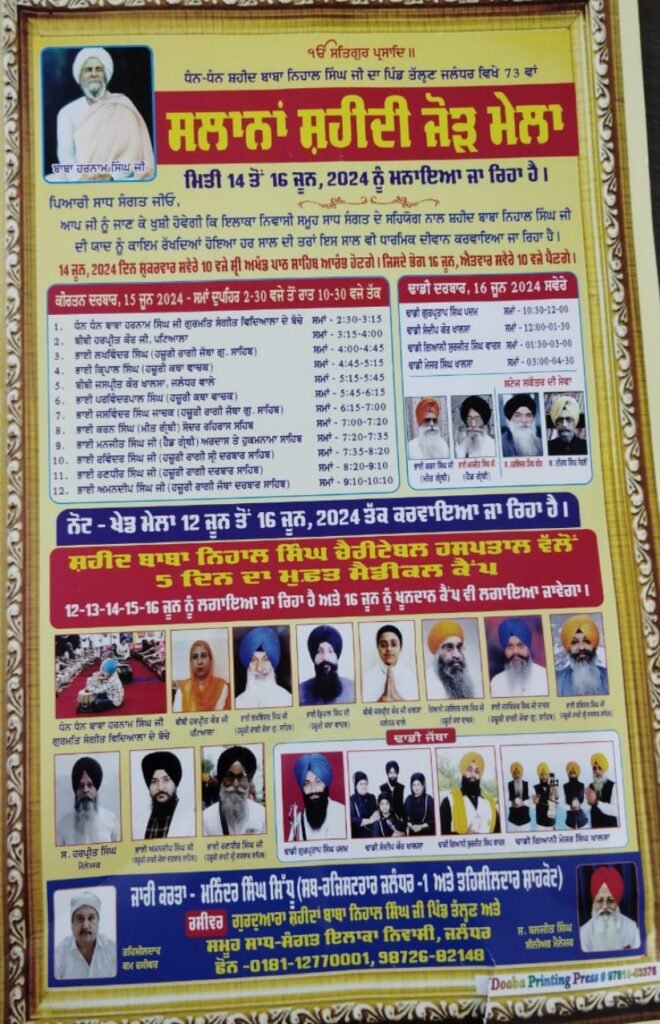 ੴ ਸਤਿਗੁਰ ਪ੍ਰਸਾਦਿ॥
ਧੰਨ-ਧੰਨ ਸ਼ਹੀਦ ਬਾਬਾ ਨਿਹਾਲ ਸਿੰਘ ਜੀ ਦਾ ਪਿੰਡ ਤੱਲ੍ਹਣ ਜਲੰਧਰ ਵਿਖੇ 73 ਵਾਂ
ਸਲਾਨਾਂ ਸ਼ਹੀਦੀ ਜੋੜ ਮੇਲਾ
ਬਾਬਾ ਹਰਨਾਮ ਸਿੰਘ ਜੀ
ਮਿਤੀ 14 ਤੋਂ 16 ਜੂਨ, 2024 ਨੂੰ ਮਨਾਇਆ ਜਾ ਰਿਹਾ ਹੈ।
ਪਿਆਰੀ ਸਾਧ ਸੰਗਤ ਜੀਓ,
ਆਪ ਜੀ ਨੂੰ ਜਾਣ ਕੇ ਖੁਸ਼ੀ ਹੋਵੇਗੀ ਕਿ ਇਲਾਕਾ ਨਿਵਾਸੀ ਸਮੂਹ ਸਾਧ ਸੰਗਤ ਦੇ ਸਹਿਯੋਗ ਨਾਲ ਸ਼ਹੀਦ ਬਾਬਾ ਨਿਹਾਲ ਸਿੰਘ ਜੀ
ਦੀ ਯਾਦ ਨੂੰ ਕਾਇਮ ਰੱਖਦਿਆਂ ਹੋਇਆ ਹਰ ਸਾਲ ਦੀ ਤਰਾਂ ਇਸ ਸਾਲ ਵੀ ਧਾਰਮਿਕ ਦੀਵਾਨ ਕਰਵਾਇਆ ਜਾ ਰਿਹਾ ਹੈ।
14 ਜੂਨ, 2024 ਦਿਨ ਸ਼ੁਕਰਵਾਰ ਸਵੇਰੇ 10 ਵਜੇ ਸ਼੍ਰੀ ਅਖੰਡ ਪਾਠ ਸਾਹਿਬ ਆਰੰਭ ਹੋਣਗੇ। ਜਿਸਦੇ ਭੋਗ 16 ਜੂਨ, ਐਤਵਾਰ ਸਵੇਰੇ 10 ਵਜੇ ਪੈਣਗੇ।
ਕੀਰਤਨ ਦਰਬਾਰ, 15 ਜੂਨ 2024 - ਸਮਾਂ ਦੁਪਹਿਰ 2-30 ਵਜੇ ਤੋਂ ਰਾਤ 10-30 ਵਜੇ ਤੱਕ
1. ਧੰਨ ਧੰਨ ਬਾਬਾ ਹਰਨਾਮ ਸਿੰਘ ਜੀ ਗੁਰਮਤਿ ਸੰਗੀਤ ਵਿਦਿਆਲਾ ਦੇ ਬੱਚੇ ਸਮਾਂ - 2:30-3:15
2. ਬੀਬੀ ਹਰਪ੍ਰੀਤ ਕੌਰ ਜੀ, ਪਟਿਆਲਾ ਸਮਾਂ - 3:15-4:00
3. ਭਾਈ ਲਖਵਿੰਦਰ ਸਿੰਘ (ਹਜ਼ੂਰੀ ਰਾਗੀ ਜੱਥਾ ਗੁ. ਸਾਹਿਬ) ਸਮਾਂ - 4:00-4:45
4. ਭਾਈ ਕ੍ਰਿਪਾਲ ਸਿੰਘ (ਹਜ਼ੂਰੀ ਕਥਾ ਵਾਚਕ) ਸਮਾਂ - 4:45-5:15
5. ਬੀਬੀ ਜਸਪ੍ਰੀਤ ਕੌਰ ਖਾਲਸਾ, ਜਲੰਧਰ ਵਾਲੇ ਸਮਾਂ - 5:15-5:45
6. ਭਾਈ ਪਰਵਿੰਦਰਪਾਲ ਸਿੰਘ (ਹਜ਼ੂਰੀ ਕਥਾ ਵਾਚਕ) ਸਮਾਂ - 5:45-6:15
7. ਭਾਈ ਜਸਵਿੰਦਰ ਸਿੰਘ ਜਾਚਕ (ਹਜ਼ੂਰੀ ਰਾਗੀ ਜੱਥਾ ਗੁ. ਸਾਹਿਬ) ਸਮਾਂ - 6:15-7:00
8. ਭਾਈ ਕਰਨ ਸਿੰਘ (ਮੀਤ ਗ੍ਰੰਥੀ) ਸੋਦਰ ਰਹਿਰਾਸ ਸਾਹਿਬ ਸਮਾਂ - 7:00-7:20
9. ਭਾਈ ਮਨਜੀਤ ਸਿੰਘ ਜੀ (ਹੈੱਡ ਗ੍ਰੰਥੀ) ਅਰਦਾਸ ਤੇ ਹੁਕਮਨਾਮਾ ਸਾਹਿਬ ਸਮਾਂ - 7:20-7:35
10. ਭਾਈ ਰਵਿੰਦਰ ਸਿੰਘ ਜੀ (ਹਜ਼ੂਰੀ ਰਾਗੀ ਸ੍ਰੀ ਦਰਬਾਰ ਸਾਹਿਬ) ਸਮਾਂ - 7:35-8:20
11. ਭਾਈ ਰਣਧੀਰ ਸਿੰਘ ਜੀ (ਹਜ਼ੂਰੀ ਰਾਗੀ ਦਰਬਾਰ ਸਾਹਿਬ) ਸਮਾਂ - 8:20-9:10
12. ਭਾਈ ਅਮਨਦੀਪ ਸਿੰਘ ਜੀ (ਹਜ਼ੂਰੀ ਰਾਗੀ ਜੱਥਾ ਦਰਬਾਰ ਸਾਹਿਬ) ਸਮਾਂ - 9:10-10:10
ਢਾਡੀ ਦਰਬਾਰ, 16 ਜੂਨ 2024 ਸਵੇਰੇ
ਢਾਡੀ ਗੁਰਪ੍ਰਤਾਪ ਸਿੰਘ ਪਦਮ ਸਮਾਂ - 10:30-12:00
ਢਾਡੀ ਸੰਦੀਪ ਕੌਰ ਖਾਲਸਾ ਸਮਾਂ - 12:00-01:30
ਢਾਡੀ ਗਿਆਨੀ ਸੁਰਜੀਤ ਸਿੰਘ ਵਾਰਸ ਸਮਾਂ - 01:30-03:00
ਢਾਡੀ ਮੇਜਰ ਸਿੰਘ ਖਾਲਸਾ ਸਮਾਂ - 03:00-04:30
ਸਟੇਜ ਸਕੱਤਰ ਦੀ ਸੇਵਾ
ਭਾਈ ਕਰਨ ਸਿੰਘ ਜੀ
(ਮੀਤ ਗ੍ਰੰਥੀ)
ਭਾਈ ਮਨਜੀਤ ਸਿੰਘ ਜੀ
(ਹੈੱਡ ਗ੍ਰੰਥੀ)
ਨੋਟ - ਖੇਡ ਮੇਲਾ 12 ਜੂਨ ਤੋਂ 16 ਜੂਨ, 2024 ਤੱਕ ਕਰਵਾਇਆ ਜਾ ਰਿਹਾ ਹੈ।
ਸ਼ਹੀਦ ਬਾਬਾ ਨਿਹਾਲ ਸਿੰਘ ਚੈਰੀਟੇਬਲ ਹਸਪਤਾਲ ਵੱਲੋਂ
5 ਦਿਨ ਦਾ ਮੁਫ਼ਤ ਮੈਡੀਕਲ ਕੈਂਪ
12-13-14-15-16 ਜੂਨ ਨੂੰ ਲਗਾਇਆ ਜਾ ਰਿਹਾ ਹੈ ਅਤੇ 16 ਜੂਨ ਨੂੰ ਖੂਨਦਾਨ ਕੈਂਪ ਵੀ ਲਗਾਇਆ ਜਾਵੇਗਾ।
ਧੰਨ ਧੰਨ ਬਾਬਾ ਹਰਨਾਮ ਸਿੰਘ ਜੀ
ਗੁਰਮਤਿ ਸੰਗੀਤ ਵਿਦਿਆਲਾ ਦੇ ਬੱਚੇ
ਬੀਬੀ ਹਰਪ੍ਰੀਤ ਕੌਰ ਜੀ
ਪਟਿਆਲਾ
ਭਾਈ ਲਖਵਿੰਦਰ ਸਿੰਘ ਜੀ
(ਹਜ਼ੂਰੀ ਰਾਗੀ ਜੱਥਾ ਗੁ. ਸਾਹਿਬ)
ਭਾਈ ਕ੍ਰਿਪਾਲ ਸਿੰਘ ਜੀ
(ਹਜ਼ੂਰੀ ਕਥਾ ਵਾਚਕ)
ਬੀਬੀ ਜਸਪ੍ਰੀਤ ਕੌਰ ਖਾਲਸਾ
ਜਲੰਧਰ ਵਾਲੇ
(ਹਜ਼ੂਰੀ ਕਥਾ ਵਾਚਕ)
ਭਾਈ ਜਸਵਿੰਦਰ ਸਿੰਘ ਜੀ ਜਾਚਕ
(ਹਜ਼ੂਰੀ ਰਾਗੀ ਜੱਥਾ ਗੁ. ਸਾਹਿਬ)
ਭਾਈ ਰਵਿੰਦਰ ਸਿੰਘ ਜੀ
(ਹਜ਼ੂਰੀ ਰਾਗੀ ਸ੍ਰੀ ਦਰਬਾਰ ਸਾਹਿਬ)
ਢਾਡੀ ਜੱਥਾ
ਸ. ਹਰਪ੍ਰੀਤ ਸਿੰਘ
ਮੈਨੇਜਰ
ਭਾਈ ਅਮਨਦੀਪ ਸਿੰਘ ਜੀ
(ਹਜ਼ੂਰੀ ਰਾਗੀ ਜੱਥਾ ਦਰਬਾਰ ਸਾਹਿਬ)
ਭਾਈ ਰਣਧੀਰ ਸਿੰਘ ਜੀ
(ਹਜ਼ੂਰੀ ਰਾਗੀ ਸ੍ਰੀ ਦਰਬਾਰ ਸਾਹਿਬ)
ਢਾਡੀ ਗੁਰਪ੍ਰਤਾਪ ਸਿੰਘ ਪਦਮ
ਢਾਡੀ ਸੰਦੀਪ ਕੌਰ ਖਾਲਸਾ
ਢਾਡੀ ਗਿਆਨੀ ਸੁਰਜੀਤ ਸਿੰਘ ਵਾਰਸ
ਢਾਡੀ ਗਿਆਨੀ ਮੇਜਰ ਸਿੰਘ ਖਾਲਸਾ
ਜਾਰੀ ਕਰਤਾ - ਮਨਿੰਦਰ ਸਿੰਘ ਸਿੱਧੂ (ਸਬ-ਰਜਿਸਟਰਾਰ ਜਲੰਧਰ -1 ਅਤੇ ਤਹਿਸੀਲਦਾਰ ਸ਼ਾਹਕੋਟ)
ਰਸੀਵਰ ਗੁਰਦੁਆਰਾ ਸ਼ਹੀਦਾਂ ਬਾਬਾ ਨਿਹਾਲ ਸਿੰਘ ਜੀ ਪਿੰਡ ਤੱਲ੍ਹਣ ਅਤੇ
ਸਮੂਹ ਸਾਧ-ਸੰਗਤ ਇਲਾਕਾ ਨਿਵਾਸੀ, ਜਲੰਧਰ
ਫੋਨ -0181-12770001, 98726-82148
ਤਹਿਸੀਲਦਾਰ
ਕਮ ਰਸੀਵਰ
ਸ. ਬਲਜੀਤ ਸਿੰਘ
ਸੀਨੀਅਰ ਮੈਨੇਜਰ
Doaba Printing Press